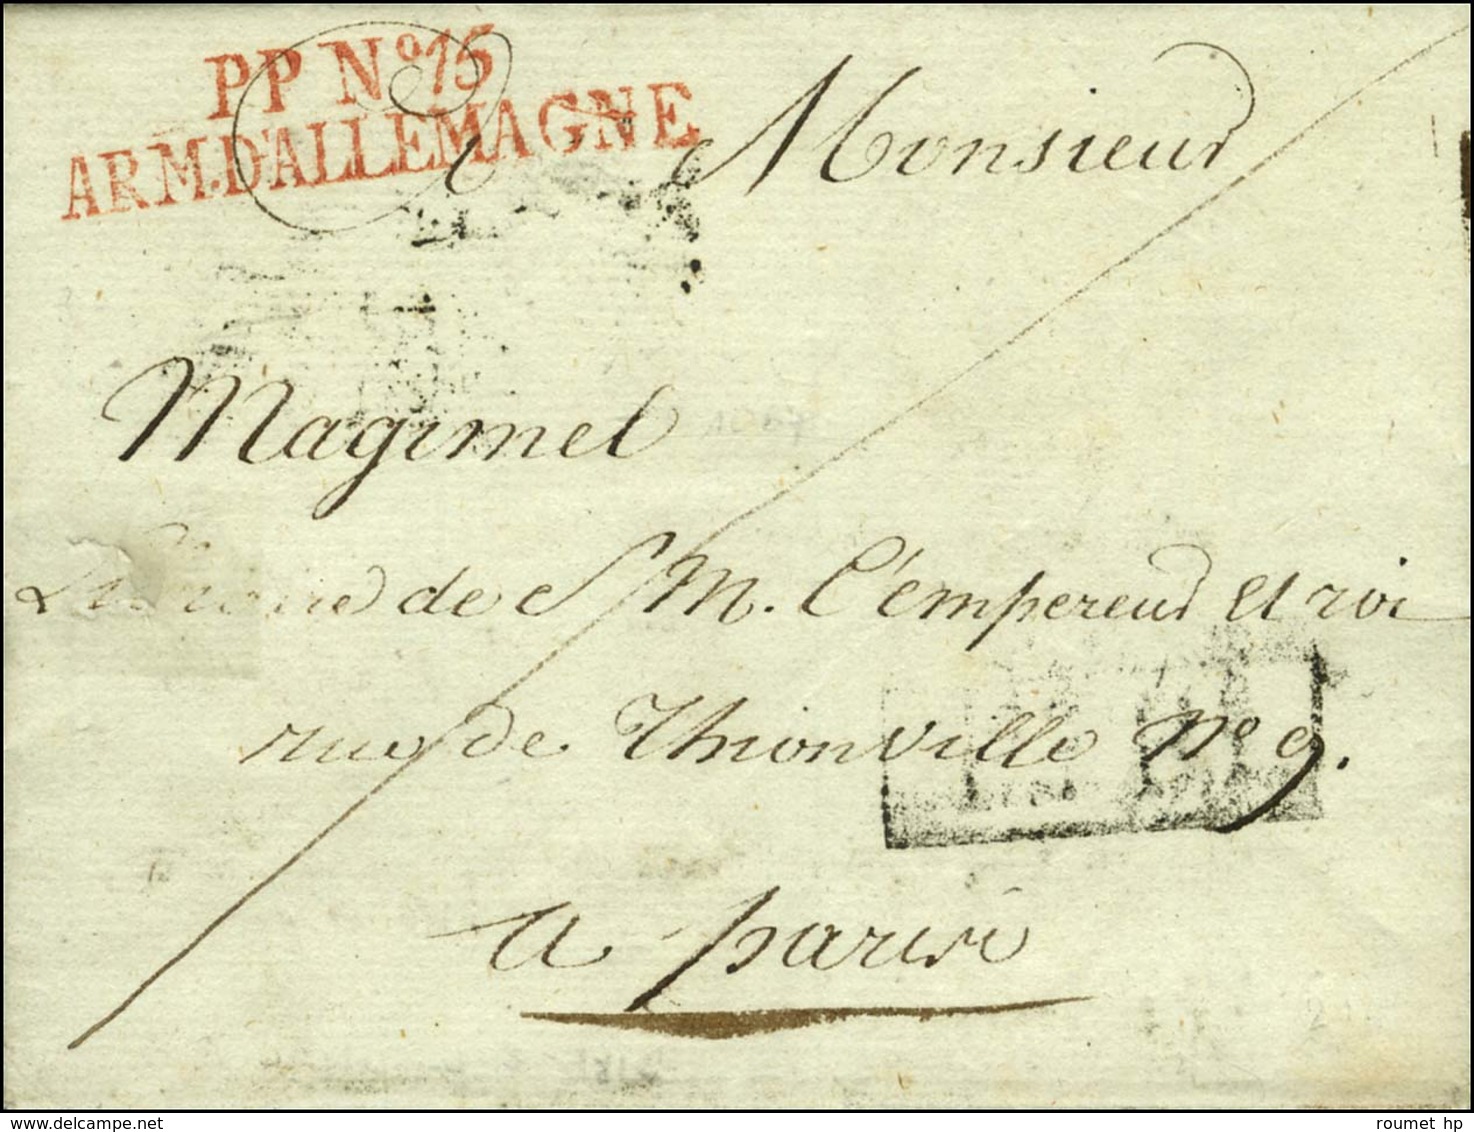 PP Nº 15
ARM.D'ALLEMAGNE
A Monsieur
Magimel
Libraire de S M. l'empereur et roi
rue de Thionville Nº 9.
a paris
© roumet hp